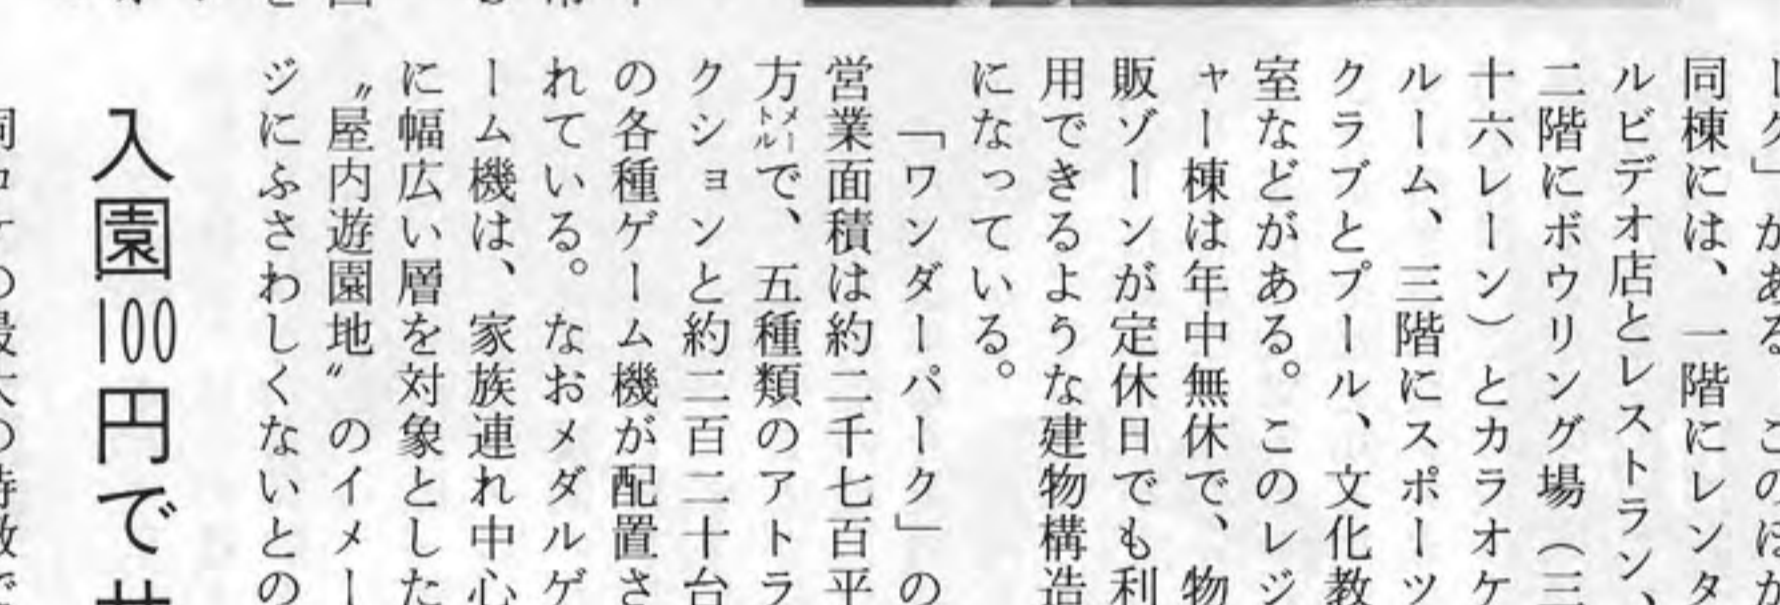 ーク」がある。このほか
同棟には、一階にレンタ
ルビデオ店とレストラン、
二階にボウリング場（三
十六レーン）とカラオケ
ルーム、三階にスポーツ
クラブとプール、文化教
室などがある。このレジ
ャー棟は年中無休で、物
販ゾーンが定休日でも利
用できるような建物構造
になっている。
「ワンダーパーク」の
営業面積は約二千七百平
方メートルで、五種類のアトラ
クションと約二百二十台
の各種ゲーム機が配置さ
れている。なおメダルゲ
ーム機は、家族連れ中心
に幅広い層を対象とした
〝屋内遊園地〟のイメー
ジにふさわしくないとの
入園100円で
同ロケの最大の特徴で